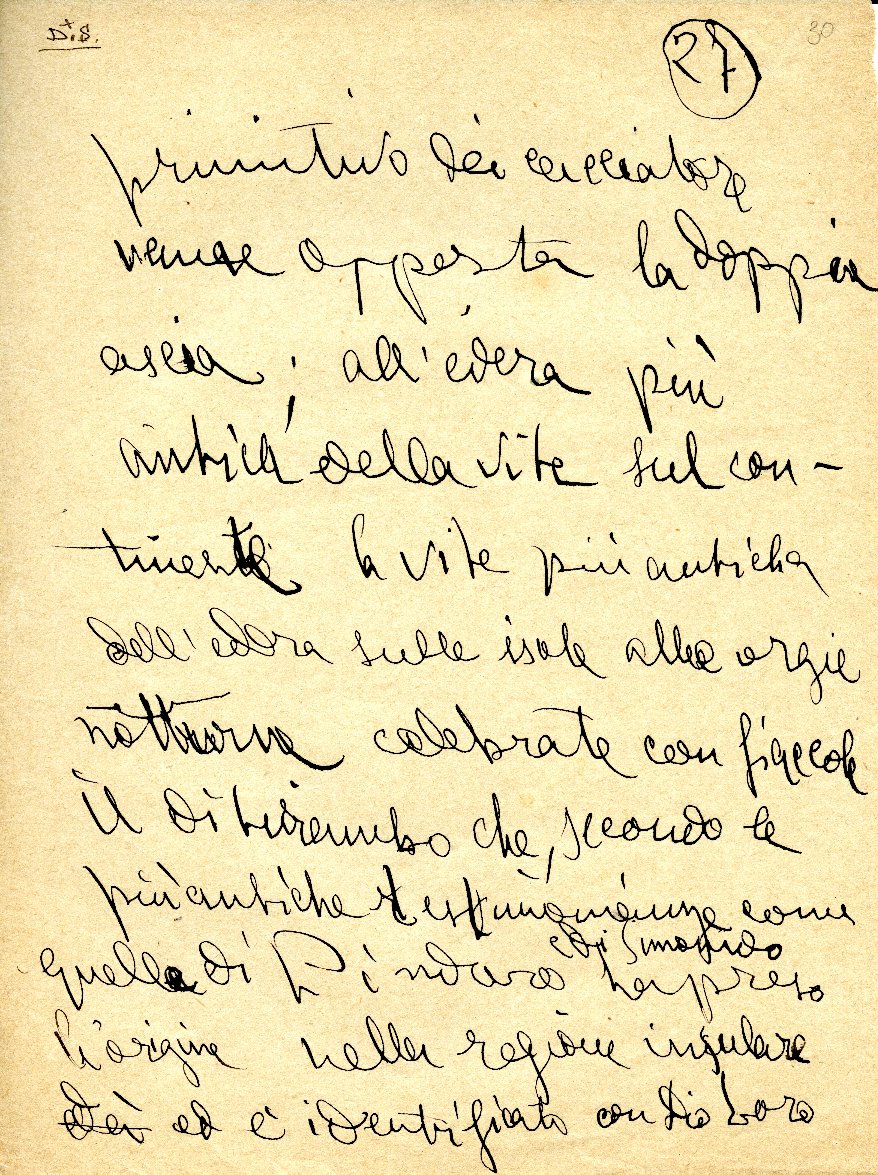 D.S.
27
30
primitivo dei cacciatore
venne opposta la doppia
ascia; all'edera più
antica della vite sul con-
tinente la vite più anticha
dell'edera sulle isole alle orgie
notturne celebrate con fiaccole
Il ditirambo che, secondo le
più antiche testimonianze come
e di Simonido
quella di Pindaro ha preso
l'origine nella regione insulare
dei ed è identificato con Dio toro